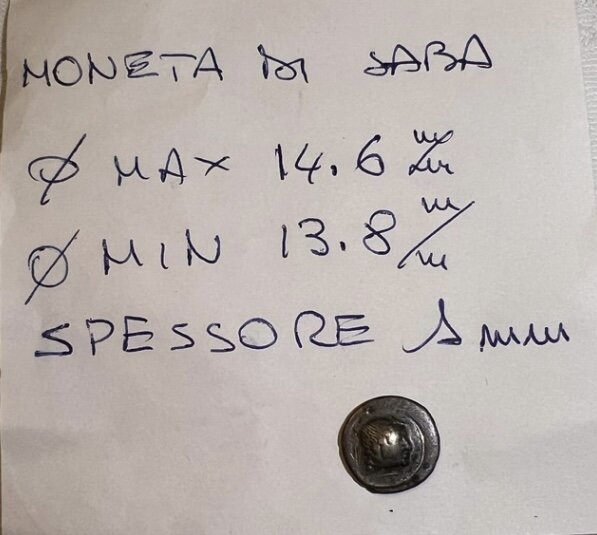 MONETA DI SABA
Ø MAX 14.6 m/m
Ø MIN 13.8 m/m
SPESSORE 1 mm